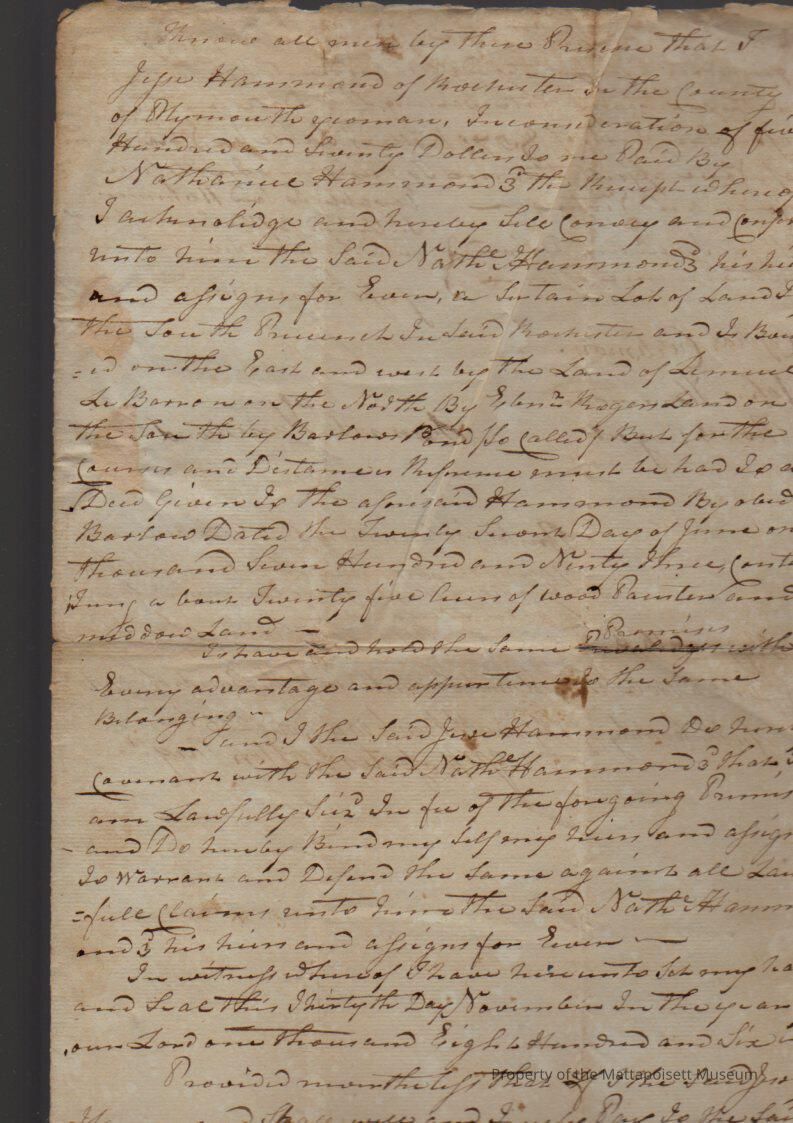 Know all men by these Presence that I
Jesse Hammond of Rochester In the County
of Plymouth yeoman, In consideration of five
Hundred and Twenty Dollers To me Paid By
Nathaniel Hammond 3d the Receipt whereof
I acknolidge and hereby Sell Convey and
unto him the Said Nathl Hammond 3d his
and assigns for Ever, a Sertain Lot of Land I
the South Precinct In Said Rochester and Is Bou
=d on the East and west by the Land of Lemuel
Le Barron on the North By Ebenr Rogers Land on
the South by Barlows Pond (so Called) But for the
Courses and Distances Refrence must be had To a
Deed Given To the aforesaid Hammond By obed
Barlow Dated the Twenty Day of June on
Thousand Seven Hundred and Ninty Three, Conta
a bout Twenty five of wood Paister and
middow Land —
To have and hold the Same Premises with
Every advantage and to the Same
Belonging
and I the Said Jesse Hammond Do here
Covenant with the Said Nathl Hammond 3d that I
am Lawfully In fee of the foregoing Premis
and Do hereby Bind my Self my heirs and assign
To Warrant and Defend the Same against all Law
=full Claims unto him the Said Nathl Hamm
ond 3d his heirs and assigns for Ever —
In witness whereof I have here unto Set my ha
and Seal this Thirtyth Day November In the year
our Lord one thousand Eight Hundred and Six
Provided nevertheless that I the Said
Shall well and Pay To the Sai
Property of the Mattapoisett Museum